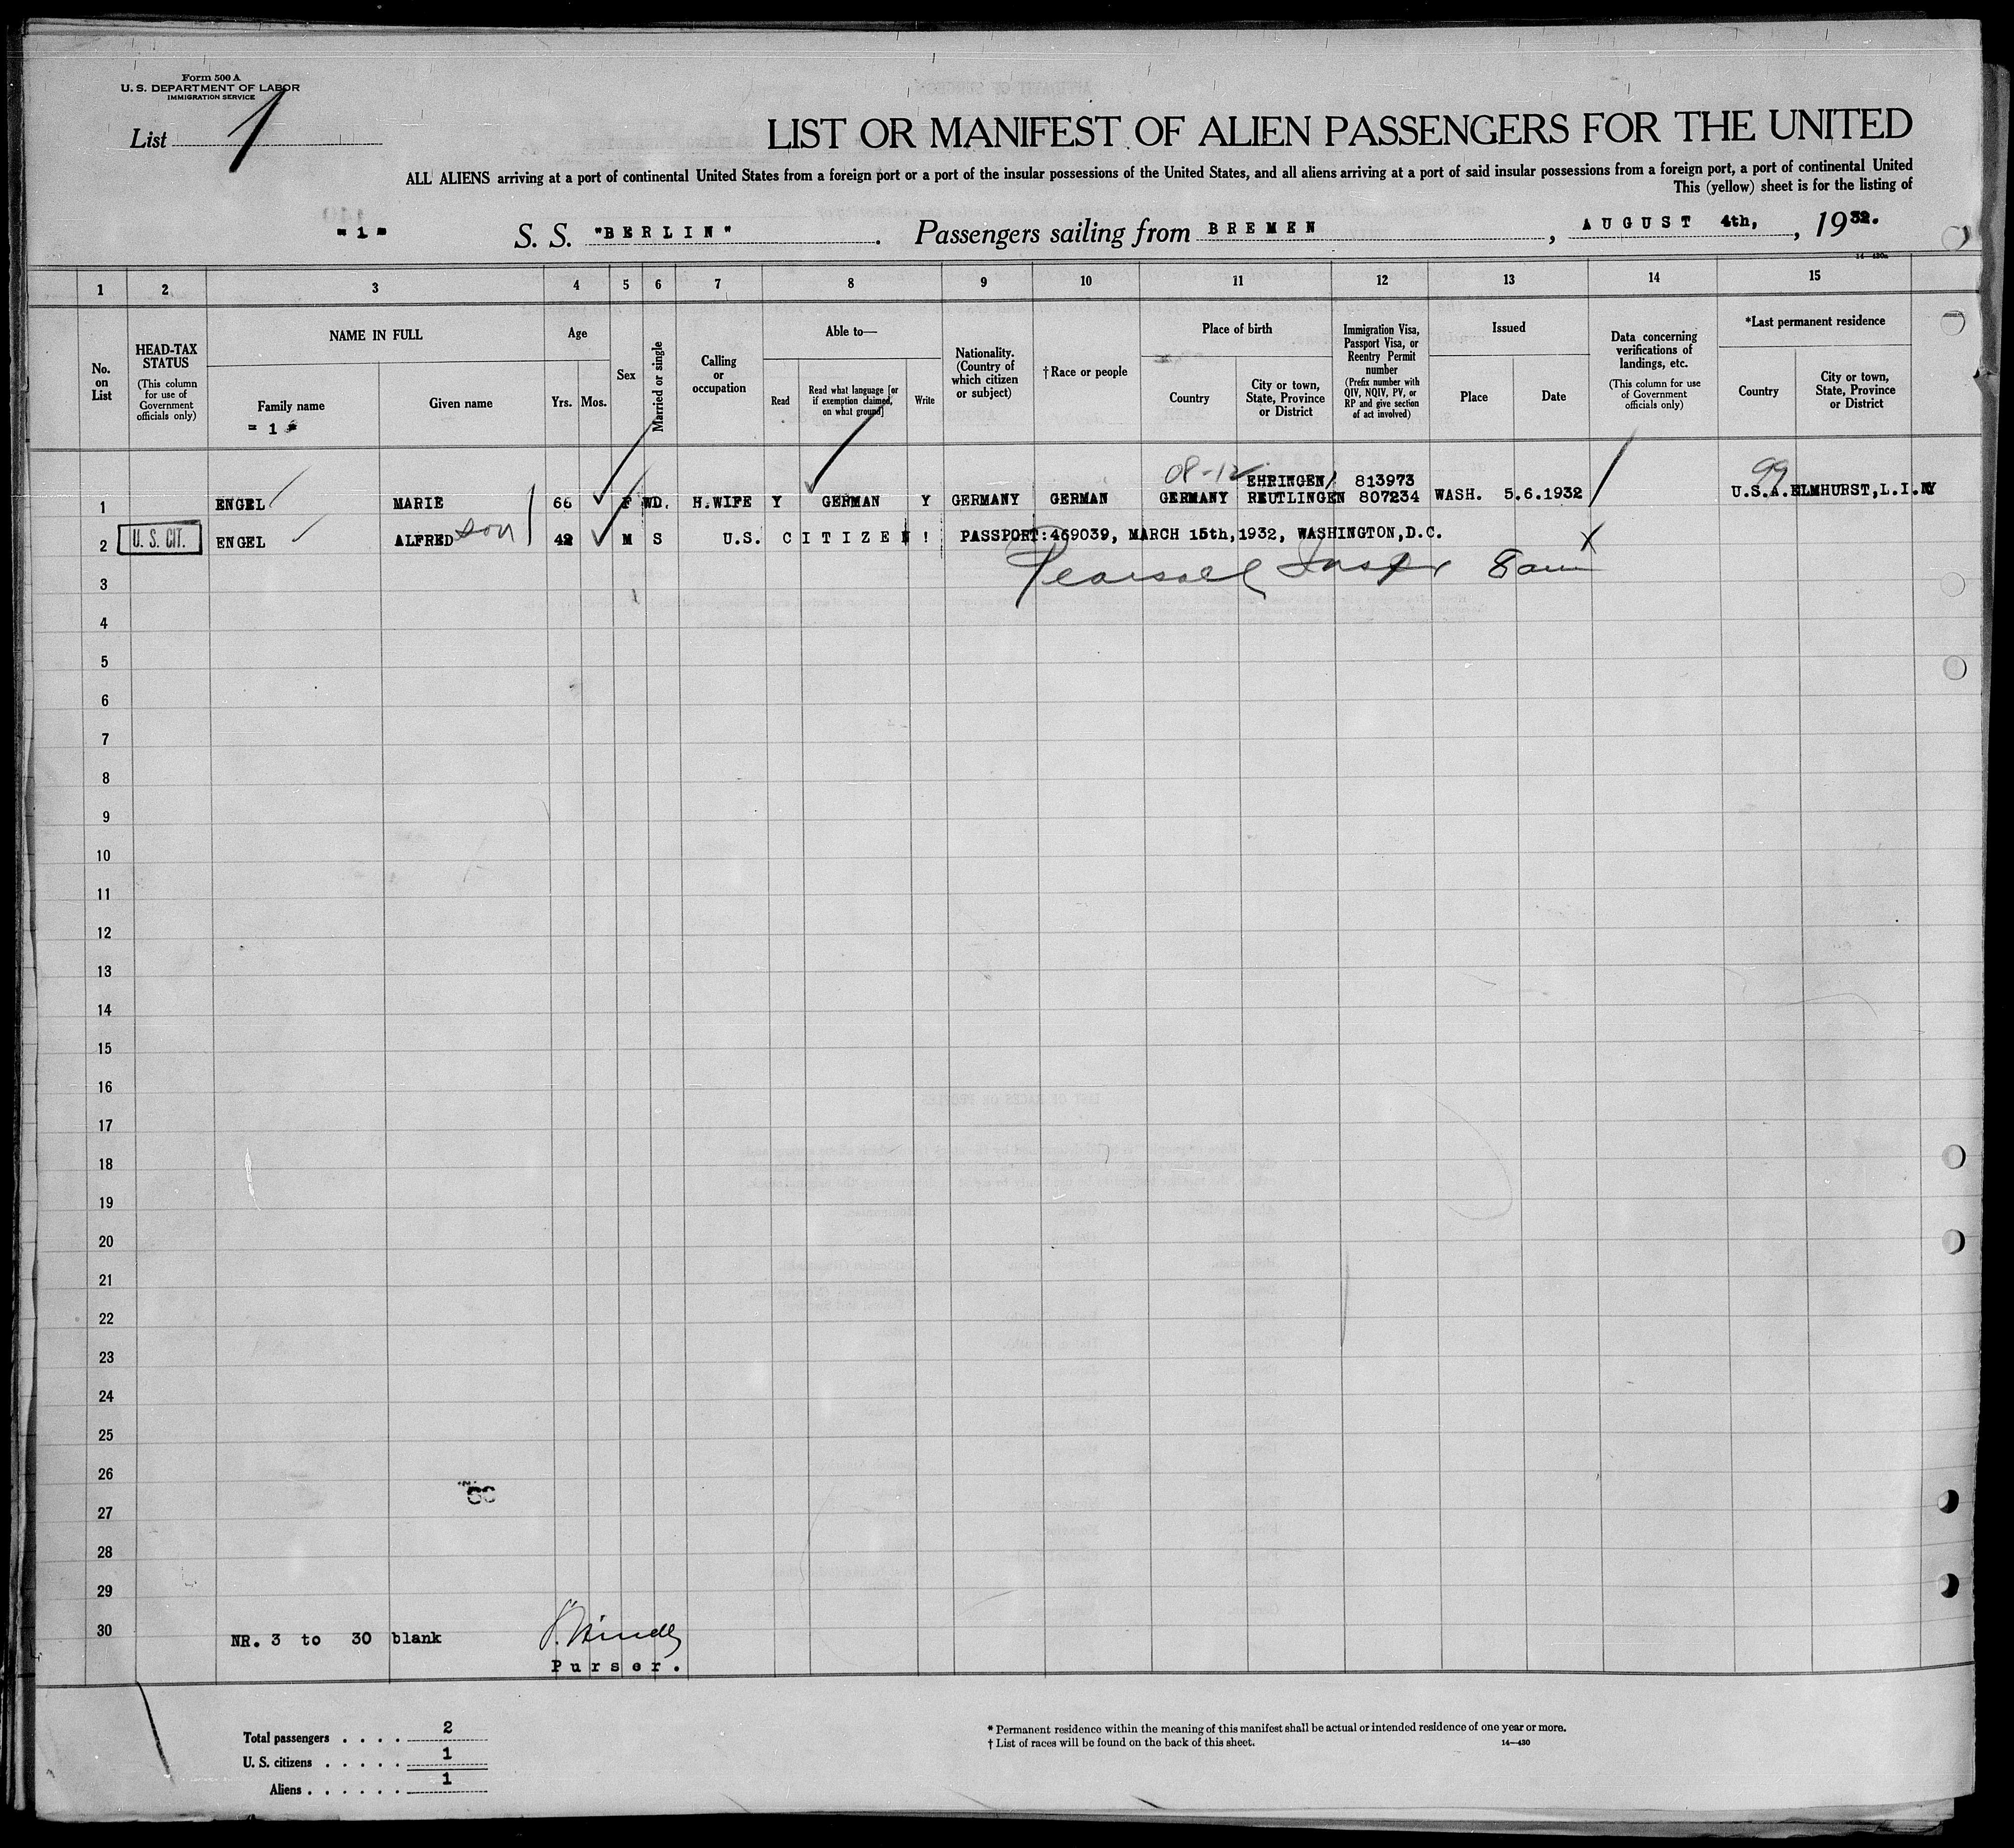 Form 500 A
U. S. DEPARTMENT OF LABOR
IMMIGRATION SERVICE
List 1
LIST OR MANIFEST OF ALIEN PASSENGERS FOR THE UNITED
ALL ALIENS arriving at a port of continental United States from a foreign port or a port of the insular possessions of the United States, and all aliens arriving at a port of said insular possessions from a foreign port, a port of continental United
This (yellow) sheet is for the listing of
= 1 = S. S. "BERLIN" . Passengers sailing from BREMEN , AUGUST 4th, , 1932.
14—430a
1 2 3 4 5 6 7 8 9 10 11 12 13 14 15
No. on List
HEAD-TAX STATUS
(This column for use of Government officials only)
NAME IN FULL
Family name
= 1 =
Given name
Age
Yrs. Mos.
Sex
Married or single
Calling or occupation
Able to—
Read
Read what language [or if exemption claimed, on what ground]
Write
Nationality. (Country of which citizen or subject)
† Race or people
Place of birth
Country
City or town, State, Province or District
Immigration Visa, Passport Visa, or Reentry Permit number
(Prefix number with QIV, NQIV, PV, or RP and give section of act involved)
Issued
Place
Date
Data concerning verifications of landings, etc.
(This column for use of Government officials only)
*Last permanent residence
Country
City or town, State, Province or District
08-12 EHRINGEN/ 813973 99
1 ENGEL MARIE 66 F WD. H.WIFE Y GERMAN Y GERMANY GERMAN GERMANY REUTLINGEN 807234 WASH. 5.6.1932 U.S.A. ELMHURST, L.I. NY
2 U. S. CIT. ENGEL ALFRED son 42 M S U.S. CITIZEN! PASSPORT:469039, MARCH 15th,1932, WASHINGTON,D.C. X
Pearsall Inspr 8 am
3
4
5
6
7
8
9
10
11
12
13
14
15
16
17
18
19
20
21
22
23
24
25
26
27
28
29
30 NR. 3 to 30 blank
Purser.
Total passengers . . . . 2
U. S. citizens . . . . . 1
Aliens . . . . . . 1
* Permanent residence within the meaning of this manifest shall be actual or intended residence of one year or more.
† List of races will be found on the back of this sheet.
14—430